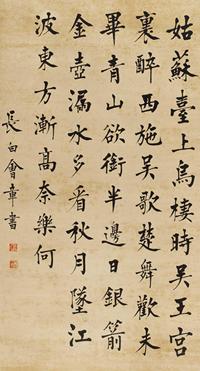 姑蘇臺上烏棲時吳王宮
裏醉西施吳歌楚舞歡未
畢青山欲銜半邊日銀箭
金壺漏水多看秋月墜江
波東方漸高奈樂何
長白會章書